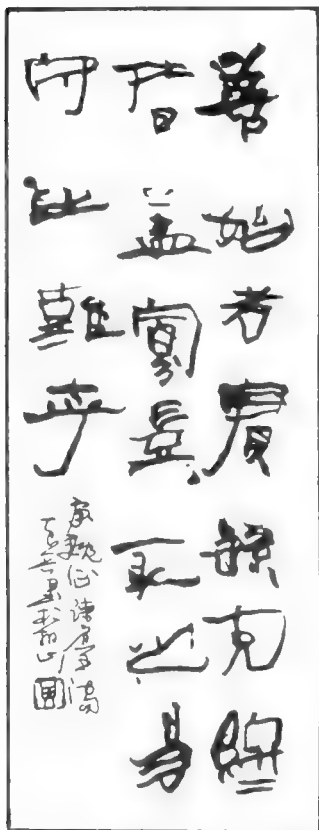 善始者實繁克終
者蓋寡豈取之易
守之難乎
唐魏征諫